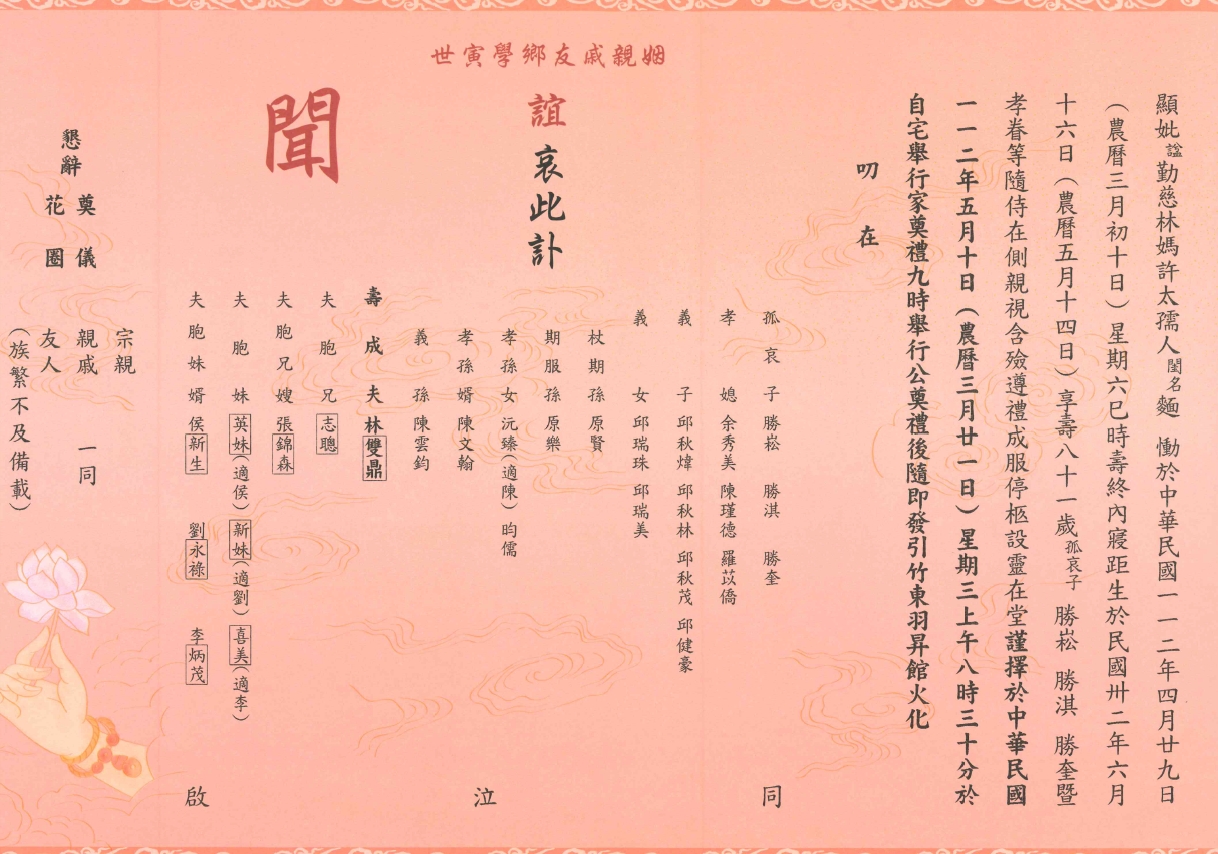 顯妣諡勤慈林媽許太孺人閨名麵　慟於中華民國一一二年四月廿九日
（農曆三月初十日）星期六巳時壽終內寢距生於民國卅二年六月
十六日（農曆五月十四日）享壽八十一歲孤哀子　勝崧　勝淇　勝奎暨
孝眷等隨侍在側親視含殮遵禮成服停柩設靈在堂謹擇於中華民國
一一二年五月十日（農曆三月廿一日）星期三上午八時三十分於
自宅舉行家奠禮九時舉行公奠禮後隨即發引竹東羽昇館火化
叨在
姻親戚友鄉學寅世
誼哀此訃
聞
孤哀子　勝崧　勝淇　勝奎
孝媳　余秀美　陳瑾德　羅苡僑
義子　邱秋煒　邱秋林　邱秋茂　邱健豪
義女　邱瑞珠　邱瑞美
杖期孫　原賢
期服孫　原樂
孝孫女　沅臻（適陳）　昀儒
孝孫婿　陳文翰
義孫　陳雲鈞
壽成夫　林雙鼎
夫胞兄　志聰
夫胞兄嫂　張錦森
夫胞妹　英妹（適侯）　新妹（適劉）　喜美（適李）
夫胞妹婿　侯新生　劉永祿　李炳茂
同泣啟
懇辭
奠儀
花圈
宗親
親戚　一同
友人
（族繁不及備載）